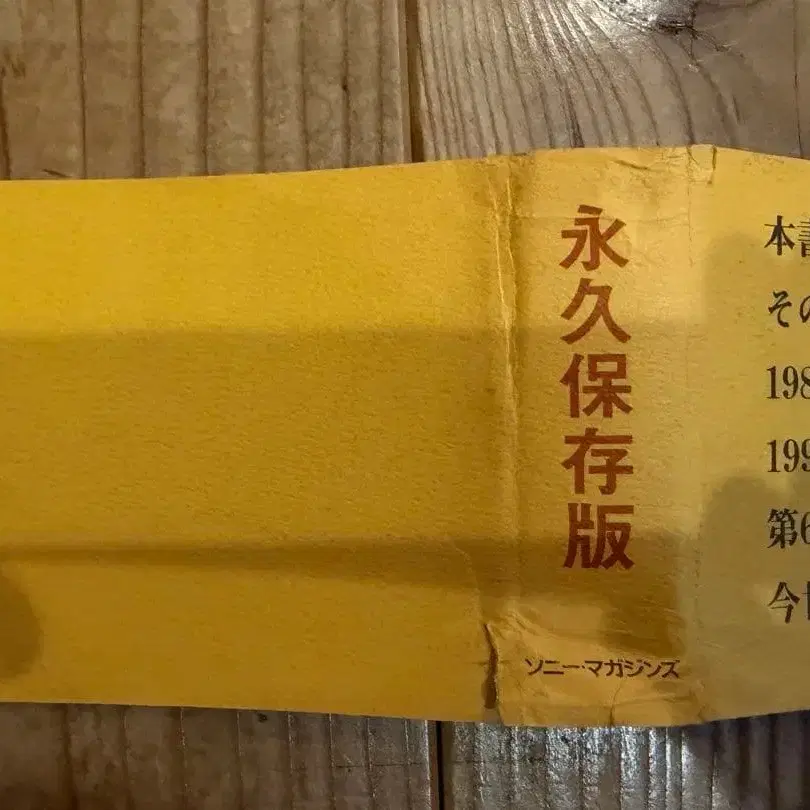 永久保存版
ソニー・マガジンズ
本書
その
198
199
第6
今世